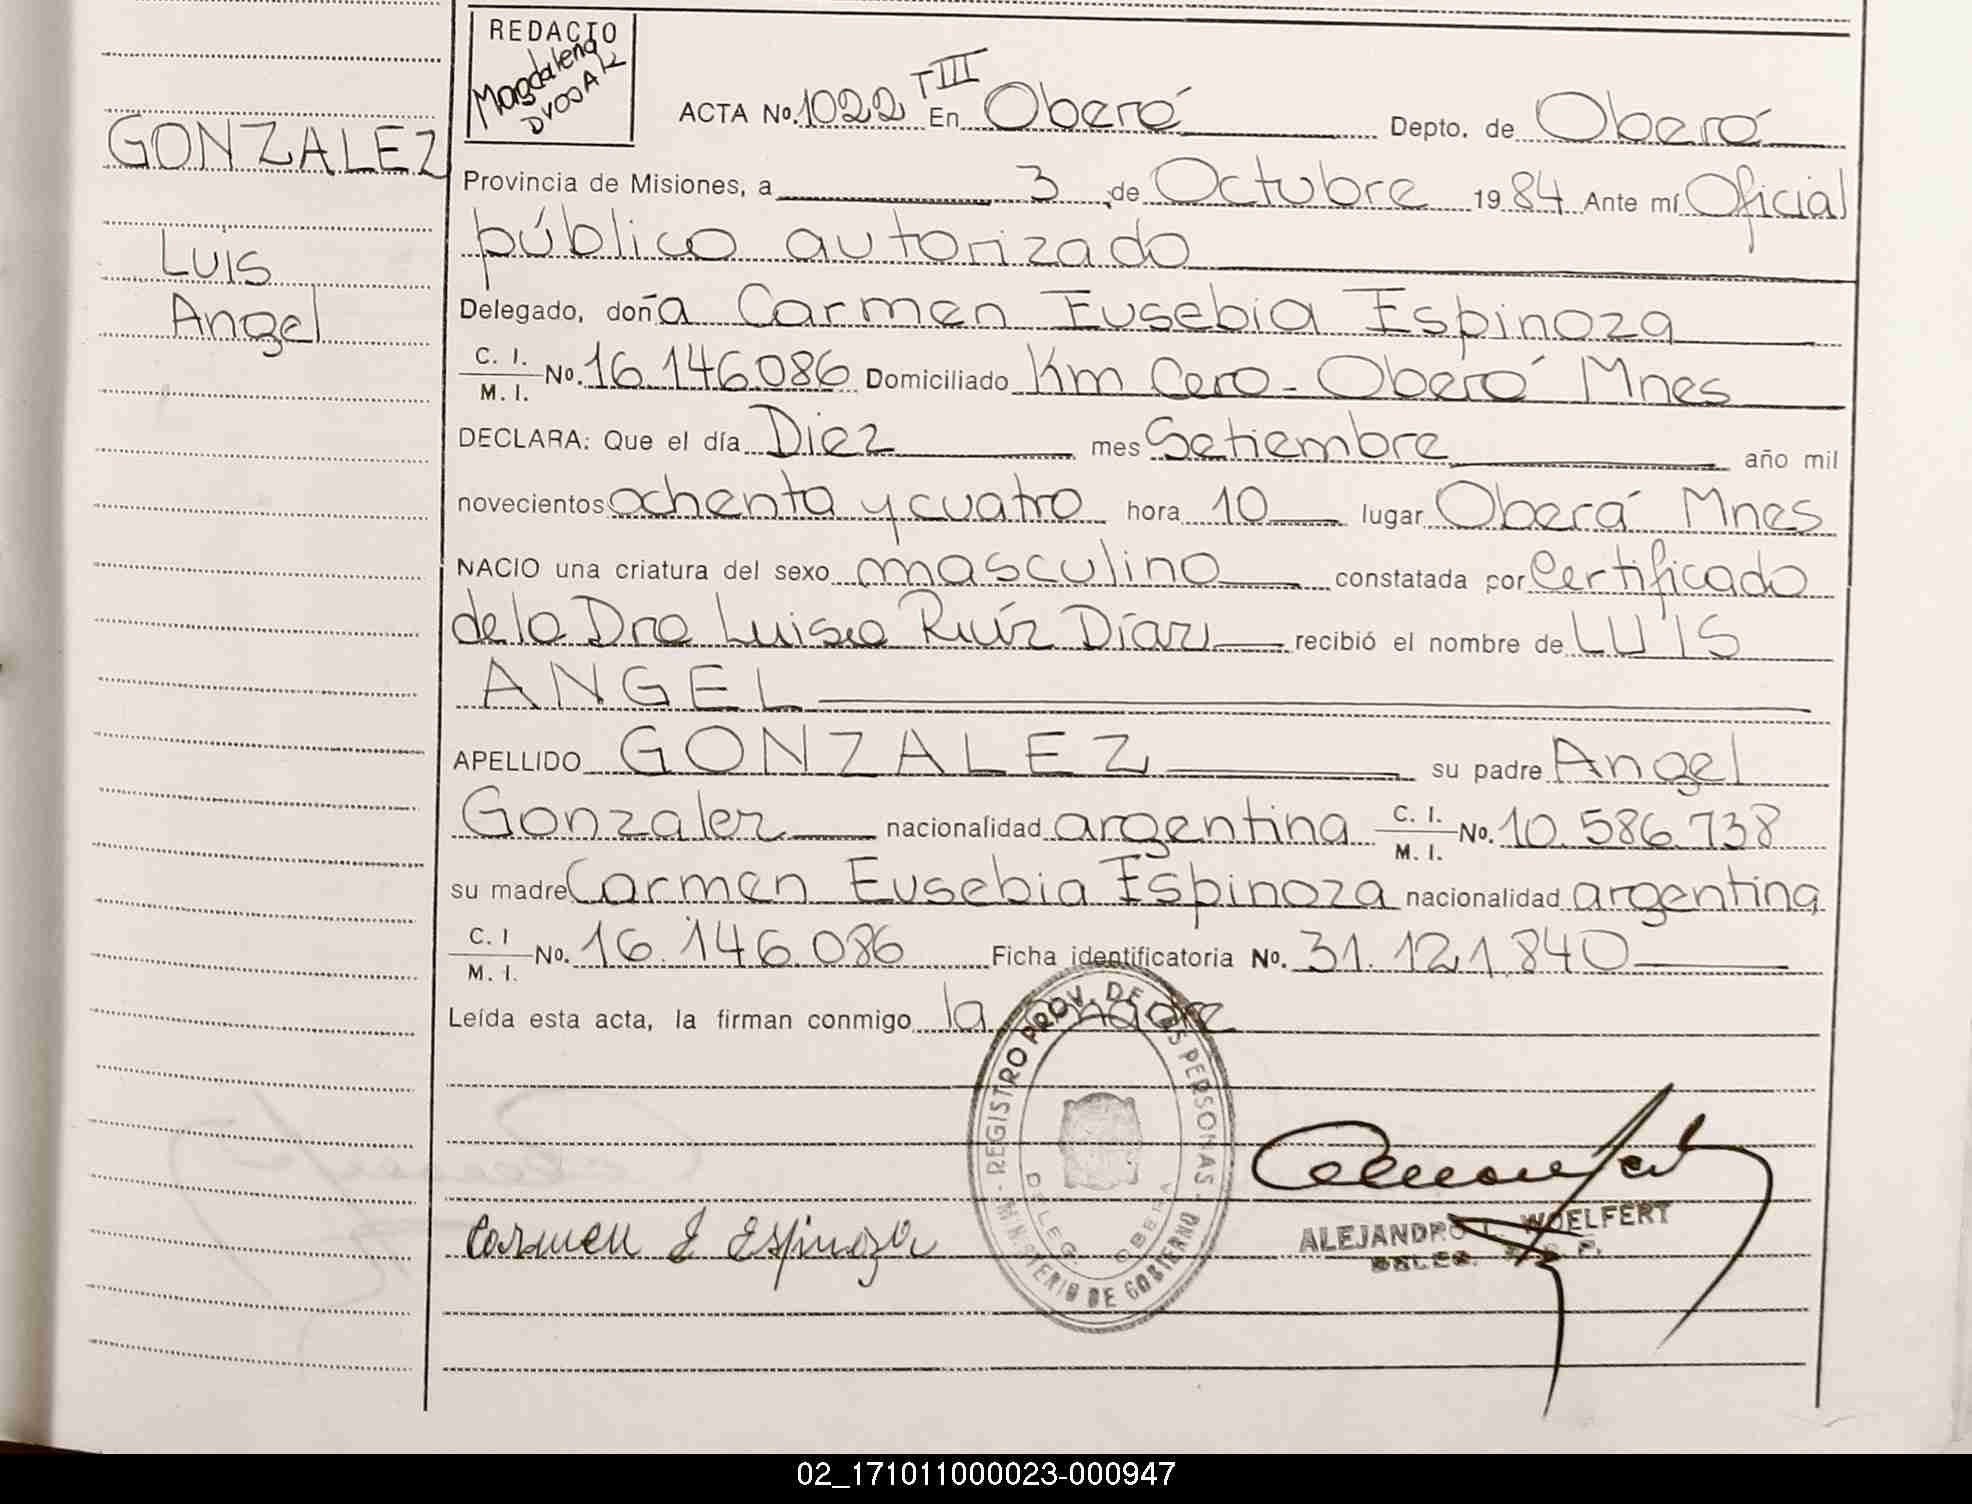 REDACTO
Magdalena
DVOSAK
GONZALEZ
Luis
Angel
ACTA No. 1022 TIII En Oberá Depto. de Oberá
Provincia de Misiones, a 3 de Octubre 1984 Ante mí Oficial
público autorizado
Delegado, doña Carmen Eusebia Espinoza
C. I. / M. I. No. 16.146.086 Domiciliado Km Cero - Oberá Mnes
DECLARA: Que el día Diez mes Setiembre año mil
novecientos ochenta y cuatro hora 10 lugar Oberá Mnes
NACIO una criatura del sexo masculino constatada por Certificado
de la Dra Luisa Ruíz Díaz recibió el nombre de LUIS
ANGEL
APELLIDO GONZALEZ su padre Angel
Gonzalez nacionalidad argentina C. I. / M. I. No. 10.586.738
su madre Carmen Eusebia Espinoza nacionalidad argentina
C. I / M. I. No. 16.146.086 Ficha identificatoria No. 31.121.840
Leída esta acta, la firman conmigo la madre
REGISTRO PROV. DE LAS PERSONAS
MINISTERIO DE GOBIERNO
DELEG. OBERA
Carmen E Espinoza
ALEJANDRO WOELFERT
DELEG.
02_171011000023-000947